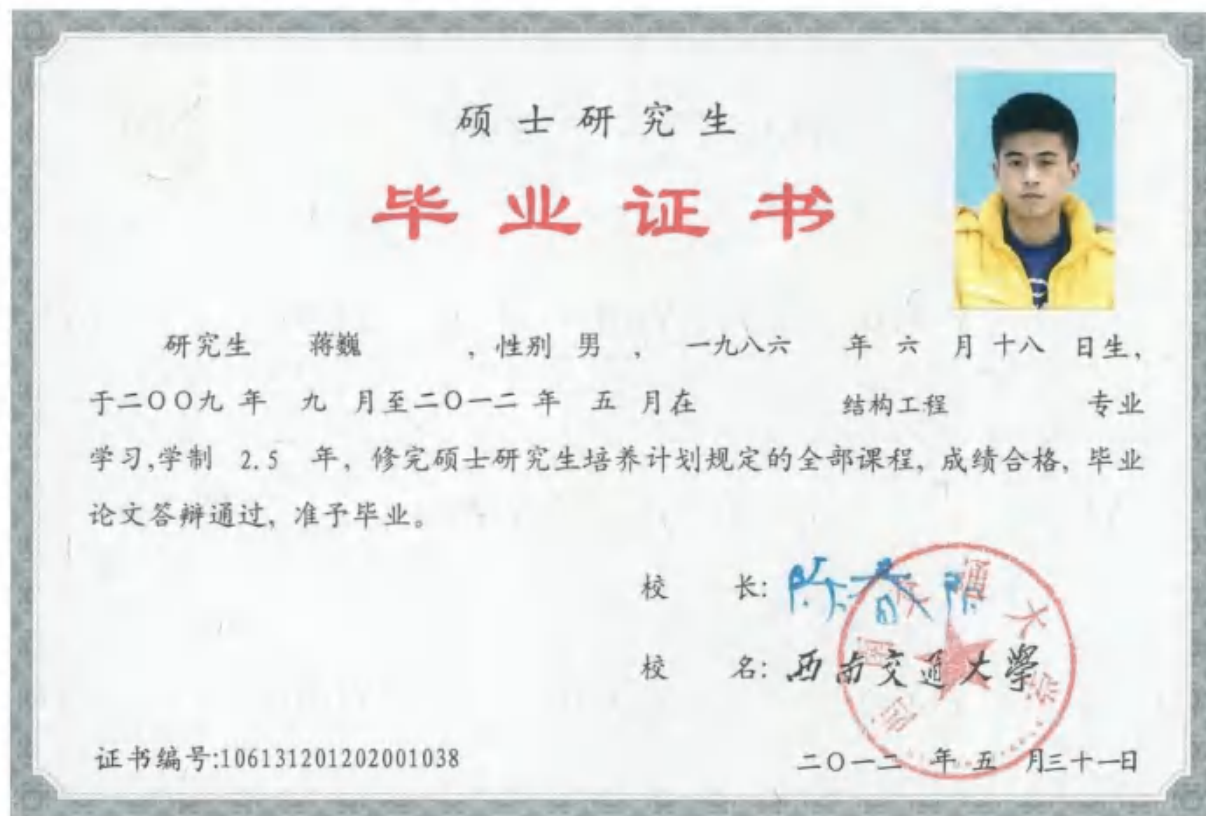 硕士研究生
毕业证书
研究生 蒋巍 ，性别 男 ， 一九八六 年 六 月 十八 日生，
于二〇〇九 年 九 月至二〇一二 年 五 月在 结构工程 专业
学习,学制 2.5 年，修完硕士研究生培养计划规定的全部课程，成绩合格，毕业
论文答辩通过，准予毕业。
校 长: 陈春阳
校 名: 西南交通大學
西南交通大学
证书编号:106131201202001038
二〇一二 年 五 月三十一日